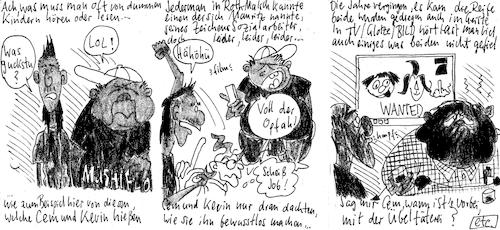 Ach was muss man oft von dummen
Kindern hören oder lesen...
Was guckstu
?
LOL!
wie zum Beispiel hier von diesen,
welche Cem und Kevin hießen
Jederman im
kannte
einen der sich Mauritz nannte,
seines Zeichens Sozialarbeiter,
doch leider leider, leider...
Hähöhü
films
Voll der
Opfah!
Scheiß
Job!
Cem und Kevin nur dran dachten,
wie sie ihn bewusstlos machen...
Die Jahre vergingen, es kam die Reife
beide wurden gediegen auch im Geiste
in TV/Glotze/BILD hört/last man viel,
auch einiges was beiden nicht gefiel
WANTED
Sag mir Cem, wann ist's vorbei
mit der Übeltäterei?
etc